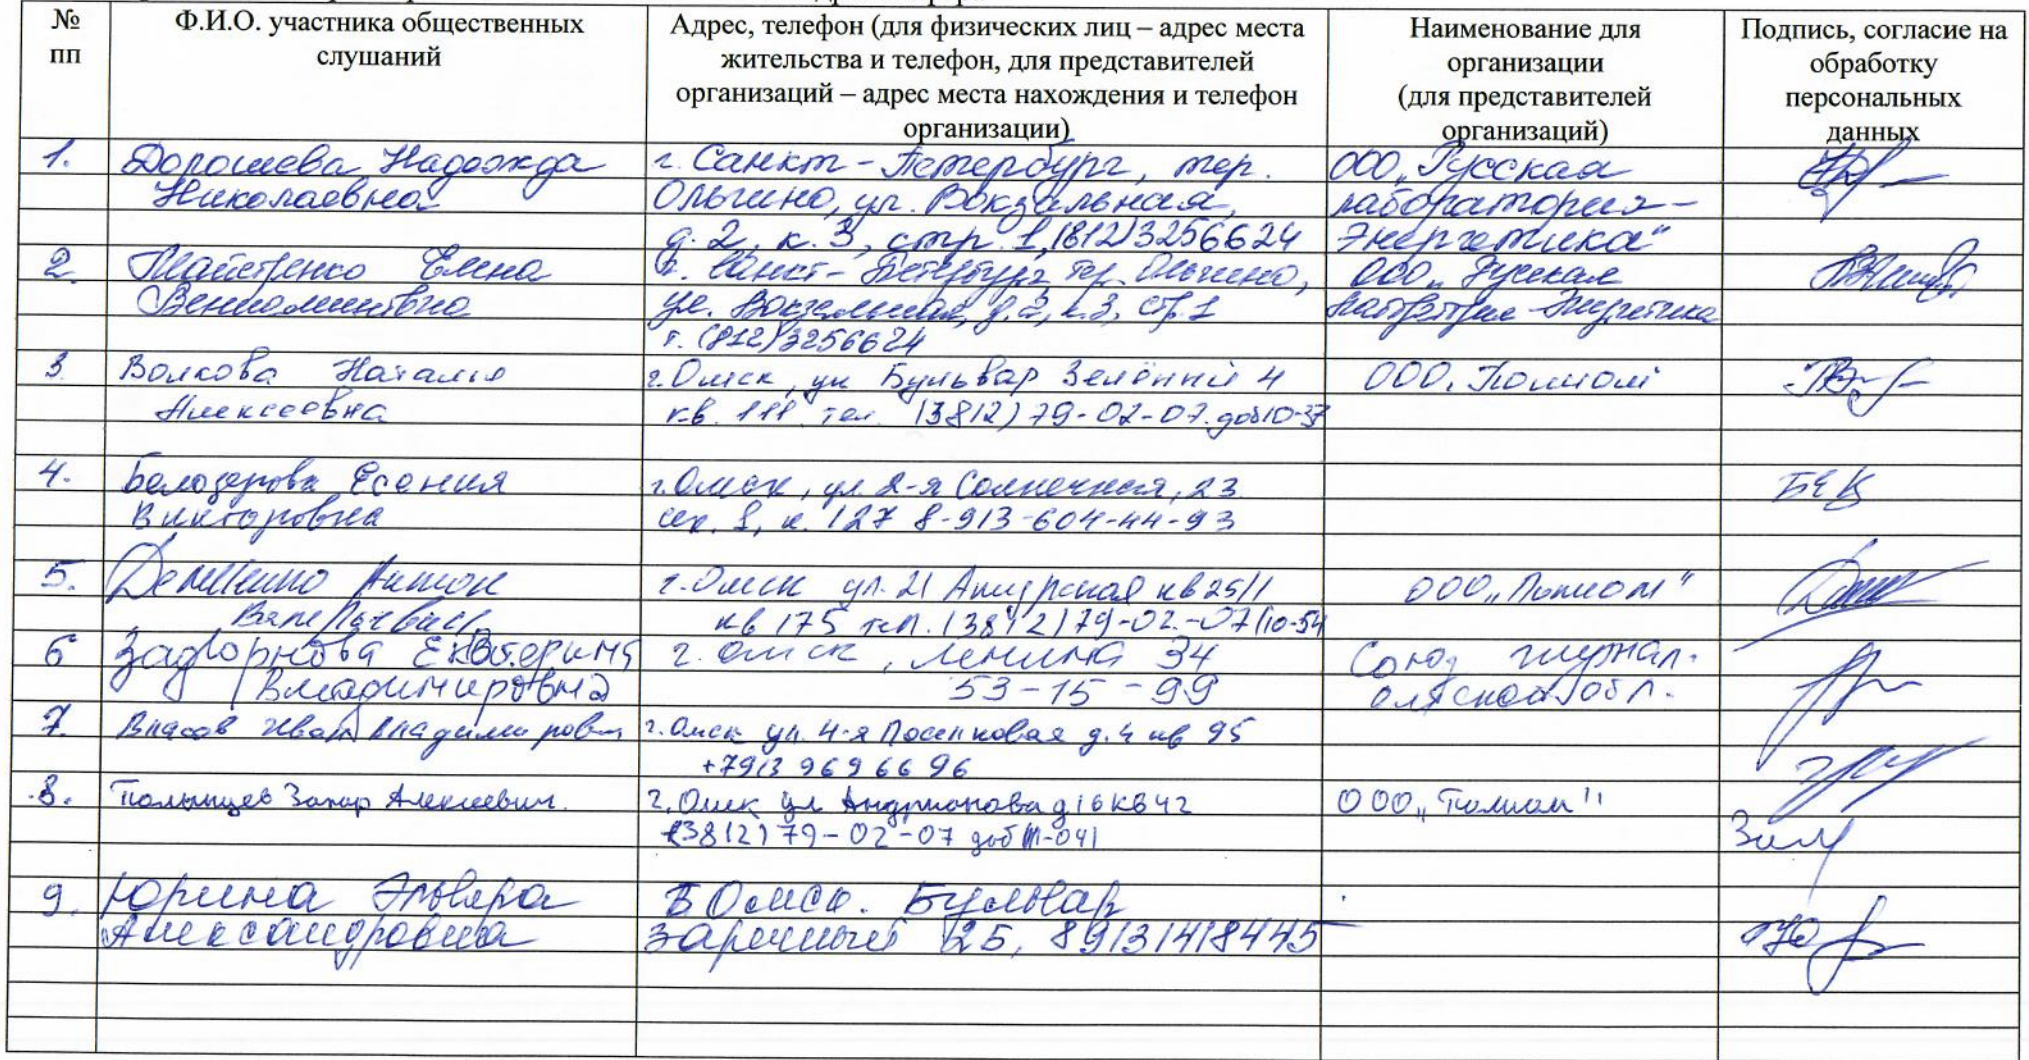 № пп
Ф.И.О. участника общественных
слушаний
Адрес, телефон (для физических лиц – адрес места
жительства и телефон, для представителей
организаций – адрес места нахождения и телефон
организации)
Наименование для
организации
(для представителей
организаций)
Подпись, согласие на
обработку
персональных
данных
1.
Дорошева Надежда
Николаевна
г. Санкт-Петербург, тер.
Ольгино, ул. Вокзальная,
д. 2, к. 3, стр. 1, (812)3256624
ООО „Русская
лаборатория-
Энергетика"
2
Елена
Вениаминовна
г. Санкт-Петербург, тер. Ольгино,
ул. Вокзальная, д. 2, к. 3, стр. 1
т. (812)3256624
ООО „Русская
лаборатория-Энергетика
3.
Волкова Наталья
Алексеевна
г. Омск, ул Бульвар Зелёный 4
кв. 111 тел. (3812) 79-02-07. доб 10-37
ООО „Полиом"
4.
Белозерова Есения
Викторовна
г. Омск, ул. 2-я Солнечная, 23
сек. 1, к. 127 8-913-604-44-93
БЕВ
5.
Антон
Валерьевич
г. Омск ул. 21 Амурская 25/1
кв 175 тел. (3812) 79-02-07 (10-54
ООО „Полиом"
6
Екатерина
Владимировна
г. Омск, Ленина 34
53-15-99
Союз журнал.
Омской обл.
7.
Власов Иван Владимирович
г. Омск ул. 4-я Поселковая д. 4 кв 95
+7913 969 66 96
8.
Захар Алексеевич.
г. Омск ул Андрианова д 16 кв 42
(3812) 79-02-07 доб 11-041
ООО „Полиом"
9.
Юрина Эльвира
Александровна
г Омск. Бульвар
Заречный 25, 89131418445